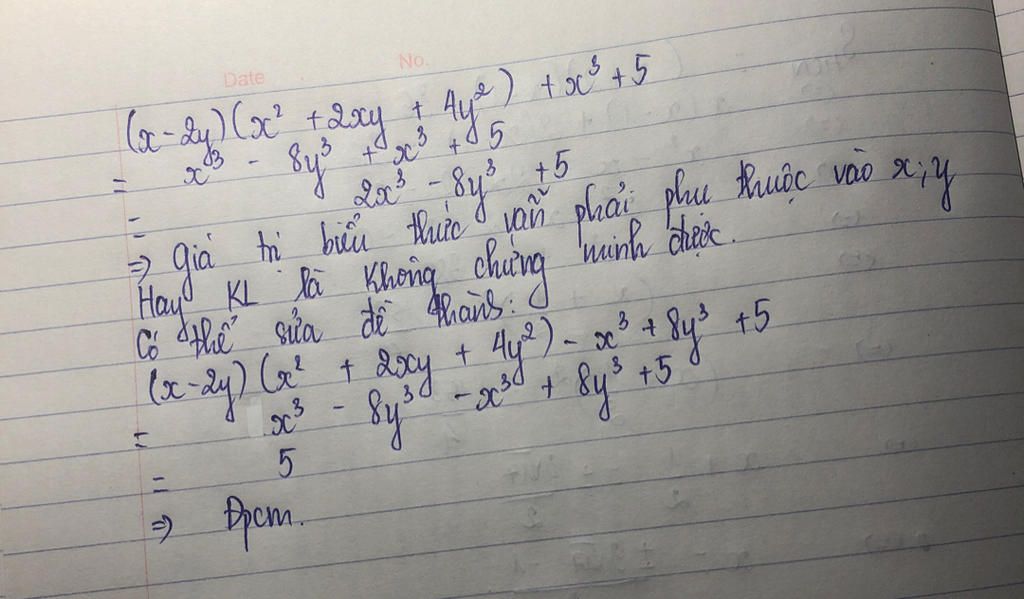 Date No.
(x-2y)(x² + 2xy + 4y²) + x³ + 5
= x³ - 8y³ + x³ + 5
= 2x³ - 8y³ + 5
⇒ giá trị biểu thức vẫn phải phụ thuộc vào x;y
Hay KL là không chứng minh được.
Có thể sửa đề thành:
(x-2y)(x² + 2xy + 4y²) - x³ + 8y³ + 5
= x³ - 8y³ - x³ + 8y³ + 5
= 5
⇒ Đpcm.